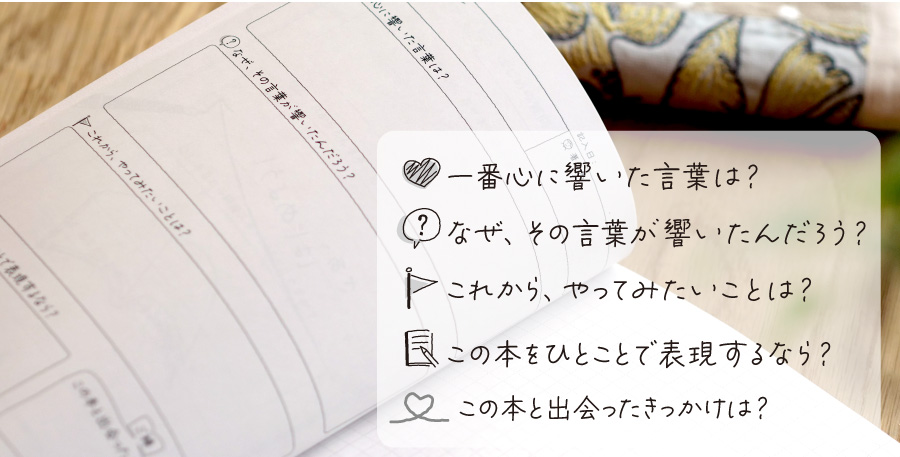 心に響いた言葉は？
なぜ、その言葉が響いたんだろう？
これから、やってみたいことは？
で表現するなら？
この本と出会った
記入日
一番心に響いた言葉は？
なぜ、その言葉が響いたんだろう？
これから、やってみたいことは？
この本をひとことで表現するなら？
この本と出会ったきっかけは？